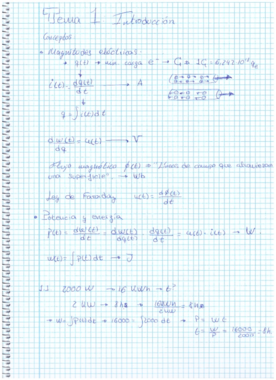 Tema 1 Introducción
Conceptos
• Magnitudes eléctricas
• q(t) → min carga e⁻ → C
i(t) = dq(t)/dt → A
q = ∫ i(t) dt
dw(t)/dq = u(t) → V
Flujo magnético φ(t) = "Líneas de campo que atraviesan
una superficie" → Wb
Ley de Faraday u(t) = dφ(t)/dt
• Potencia y energía
p(t) = dw(t)/dt = dw(t)/dq(t) · dq(t)/dt = u(t) · i(t) → W
w(t) = ∫ p(t) dt → J
1.1 2000 W → 16 kWh → t?
2 kW → 8h → 16kWh/2kW = 8h
→ w = ∫ p(t) dt → 16000 = ∫ 2000 dt →
t = W/P = 16000/2000 = 8h